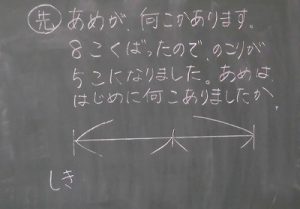 先 あめが、何こかあります。
8こくばったので、のこりが
5こになりました。あめは、
はじめに何こありましたか。
しき